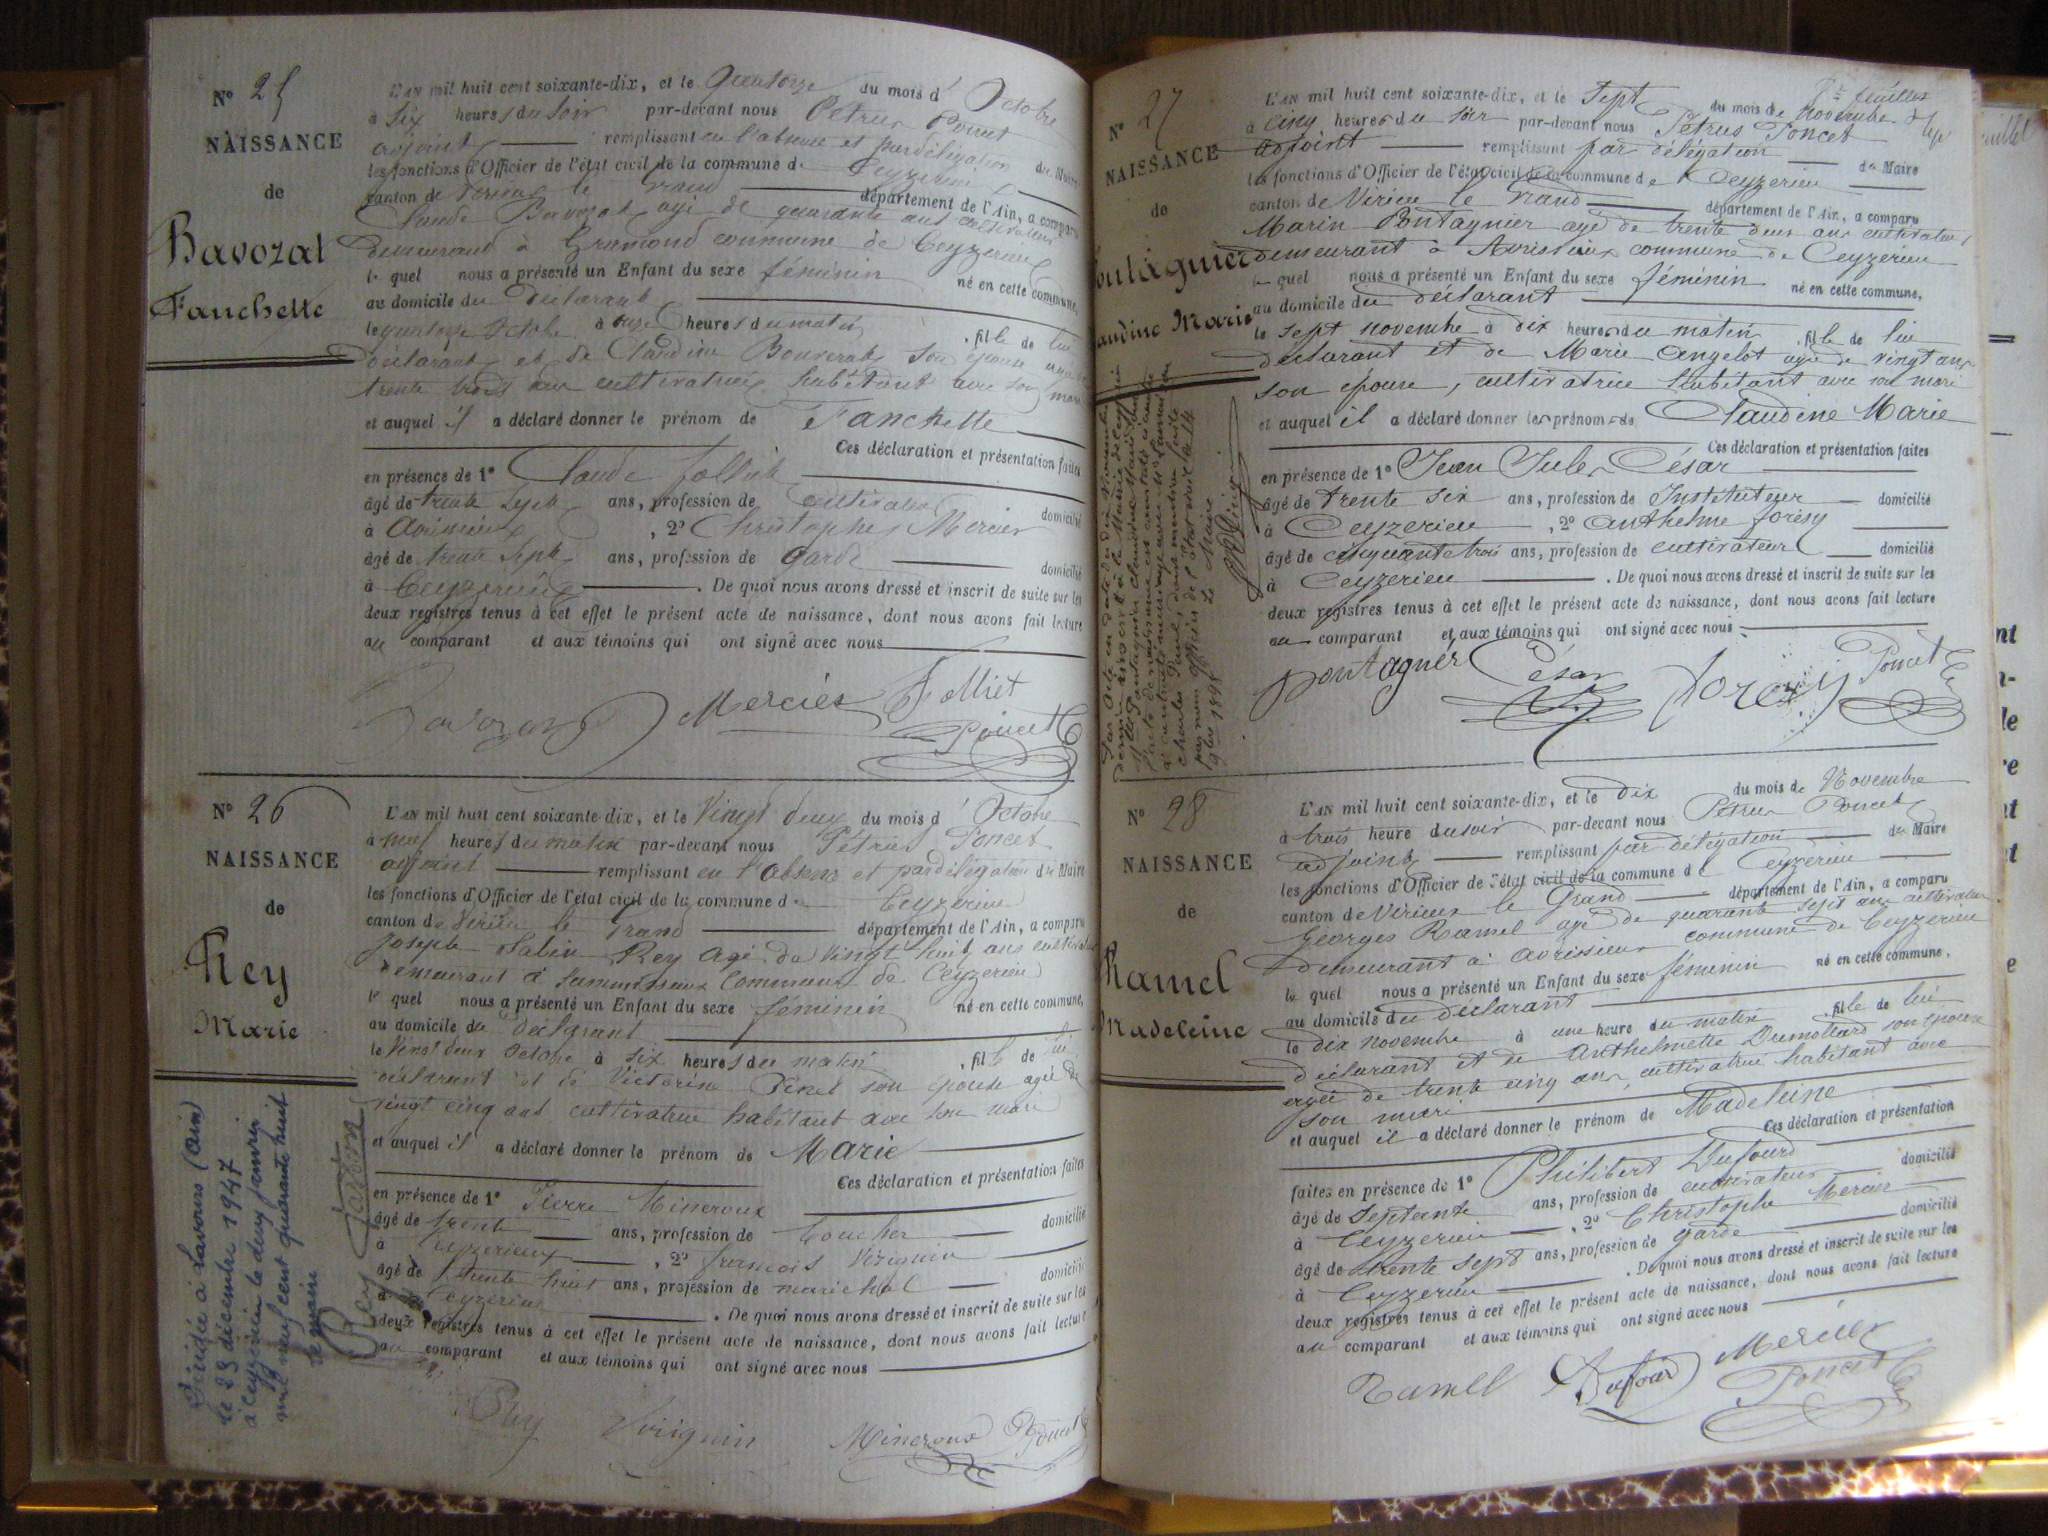 N° 25
NAISSANCE
de
Bavozat
Fanchette
L'AN mil huit cent soixante-dix, et le Quatorze du mois d' Octobre
à Six heures du soir par-devant nous Pétrus Poncet
adjoint remplissant en l'absence et par délégation du Maire
les fonctions d'Officier de l'état civil de la commune de Ceyzerieu
canton de Virieu le Grand département de l'Ain, a comparu
Claude Bavozat agé de quarante ans cultivateur
demeurant à Gramond commune de Ceyzerieu
le quel nous a présenté un Enfant du sexe féminin né en cette commune,
au domicile du déclarant
le quatorze Octobre à onze heures du matin , fille de lui
déclarant et de Claudine son épouse agée de
trente trois ans cultivatrice habitant avec son mari
et auquel il a déclaré donner le prénom de Fanchette
Ces déclaration et présentation faites
en présence de 1° Claude Folliet
âgé de trente sept ans, profession de cultivateur domicilié
à Avrissieu , 2° Christophe Mercier
âgé de trente sept ans, profession de garde domicilié
à Ceyzerieu . De quoi nous avons dressé et inscrit de suite sur les
deux registres tenus à cet effet le présent acte de naissance, dont nous avons fait lecture
au comparant et aux témoins qui ont signé avec nous
Bavozat Mercier Folliet
Poncet
N° 26
NAISSANCE
de
Rey
Marie
L'AN mil huit cent soixante-dix, et le Vingt deux du mois d' Octobre
à neuf heures du matin par-devant nous Pétrus Poncet
adjoint remplissant en l'absence et par délégation du Maire
les fonctions d'Officier de l'état civil de la commune de Ceyzerieu
canton de Virieu le Grand département de l'Ain, a comparu
Joseph Sabin Rey agé de Vingt huit ans cultivateur
demeurant à commune de Ceyzerieu
le quel nous a présenté un Enfant du sexe féminin né en cette commune,
au domicile du déclarant
le Vingt deux Octobre à six heures du matin , fille de lui
déclarant et de Victorine Pinet son épouse agée de
vingt cinq ans cultivatrice habitant avec son mari
et auquel il a déclaré donner le prénom de Marie
Ces déclaration et présentation faites
en présence de 1° Pierre Mineroux
âgé de trente ans, profession de boucher domicilié
à Ceyzerieux , 2° françois Vuiguin
âgé de trente huit ans, profession de maréchal domicilié
à Ceyzerieu . De quoi nous avons dressé et inscrit de suite sur les
deux registres tenus à cet effet le présent acte de naissance, dont nous avons fait lecture
au comparant et aux témoins qui ont signé avec nous
Rey Mineroux Poncet
Décédée à Lavours (Ain)
le 23 décembre 1947
à Ceyzérieu le deux janvier
mil neuf cent quarante huit
le maire
N° 27
NAISSANCE
de
Claudine Marie
L'AN mil huit cent soixante-dix, et le Sept du mois de novembre
à cinq heures du soir par-devant nous Pétrus Poncet
adjoint remplissant par délégation du Maire
les fonctions d'Officier de l'état civil de la commune de Ceyzerieu
canton de Virieu le Grand département de l'Ain, a comparu
Marin Pontagnier agé de trente deux ans cultivateur
demeurant à Avrissieux commune de Ceyzerieu
le quel nous a présenté un Enfant du sexe féminin né en cette commune,
au domicile du déclarant
le sept novembre à dix heures du matin , fille de lui
déclarant et de Marie Angelot agée de vingt ans
son épouse, cultivatrice habitant avec son mari
et auquel il a déclaré donner les prénoms de Claudine Marie
Ces déclaration et présentation faites
en présence de 1° Jean Jules César
âgé de trente six ans, profession de Instituteur domicilié
à Ceyzerieu , 2° Anthelme Forésy
âgé de cinquante trois ans, profession de cultivateur domicilié
à Ceyzerieu . De quoi nous avons dressé et inscrit de suite sur les
deux registres tenus à cet effet le présent acte de naissance, dont nous avons fait lecture
au comparant et aux témoins qui ont signé avec nous
pontagnier César Poncet
Le Maire
N° 28
NAISSANCE
de
Ramel
Madeleine
L'AN mil huit cent soixante-dix, et le Dix du mois de Novembre
à trois heure du soir par-devant nous Pétrus Poncet
adjoint remplissant par délégation du Maire
les fonctions d'Officier de l'état civil de la commune d Ceyzerieu
canton de Virieux le Grand département de l'Ain, a comparu
Georges Ramel agé de quarante sept ans cultivateur
demeurant à Avrissieux commune de Ceyzerieu
le quel nous a présenté un Enfant du sexe féminin né en cette commune,
au domicile du déclarant
le dix novembre à une heure du matin , fille de lui
déclarant et de Anthelmette Dumollard son épouse
agée de trente cinq ans, cultivatrice habitant avec
son mari
et auquel il a déclaré donner le prénom de Madeleine
Ces déclaration et présentation
faites en présence de 1° Philibert Dufourd
âgé de septante ans, profession de cultivateur domicilié
à Ceyzerieu , 2° Christophe Mercier
âgé de trente sept ans, profession de garde domicilié
à Ceyzerieu . De quoi nous avons dressé et inscrit de suite sur les
deux registres tenus à cet effet le présent acte de naissance, dont nous avons fait lecture
au comparant et aux témoins qui ont signé avec nous
Ramel Dufour Mercier
Poncet